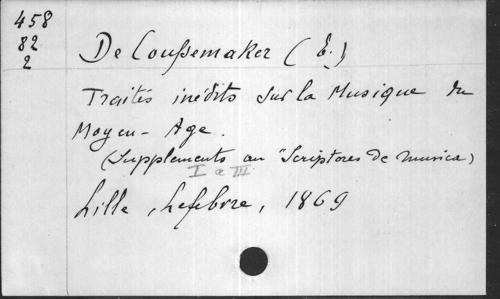 458
82
2
De Coussemaker (E.)
Traités inédits sur la Musique du
Moyen-Age.
(Supplements au "Scriptores de musica)
I a III
Lille, Lefebvre, 1869